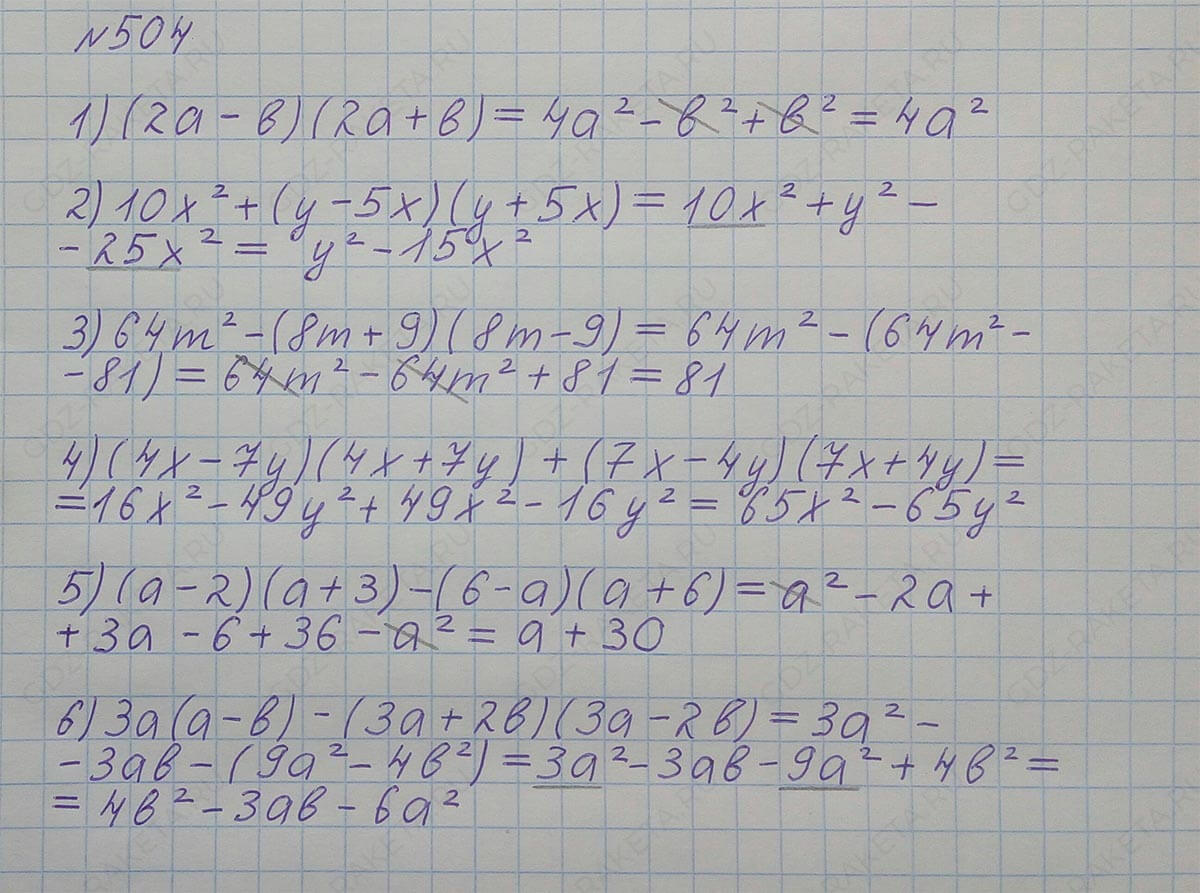 №504
1) (2а - в)(2а + в) = 4а² - в² + в² = 4а²
2) 10x² + (y - 5x)(y + 5x) = 10x² + y² -
- 25x² = y² - 15x²
3) 64m² - (8m + 9)(8m - 9) = 64m² - (64m² -
- 81) = 64m² - 64m² + 81 = 81
4) (4x - 7y)(4x + 7y) + (7x - 4y)(7x + 4y) =
= 16x² - 49y² + 49x² - 16y² = 65x² - 65y²
5) (а - 2)(а + 3) - (6 - а)(а + 6) = а² - 2а +
+ 3а - 6 + 36 - а² = а + 30
6) 3а(а - в) - (3а + 2в)(3а - 2в) = 3а² -
- 3ав - (9а² - 4в²) = 3а² - 3ав - 9а² + 4в² =
= 4в² - 3ав - 6а²
GDZ-RAKETA.RU